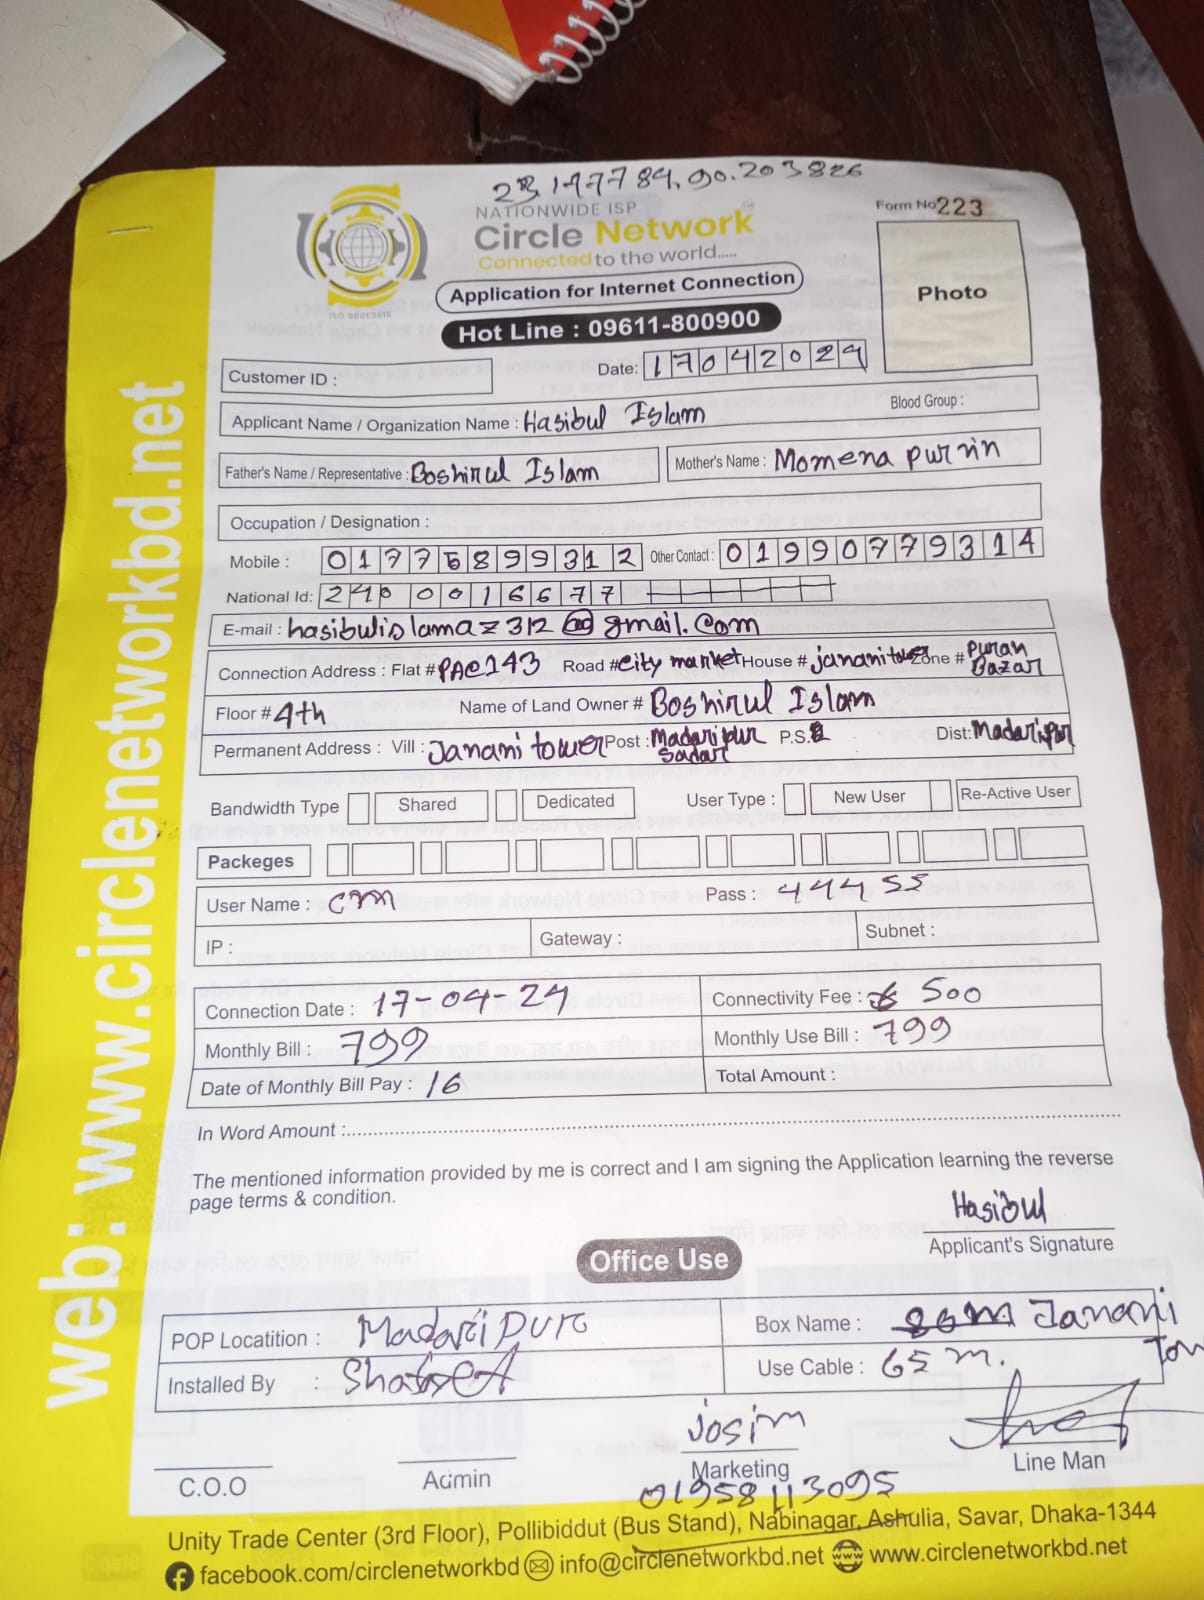 23.177784,90.203826
NATIONWIDE ISP
Circle Network
Connected to the world.....
ISO 9001:2015
Form No 223
Photo
Application for Internet Connection
Hot Line : 09611-800900
Customer ID :
Date: 17042024
Applicant Name / Organization Name : Hasibul Islam
Blood Group :
Father's Name / Representative : Boshirul Islam
Mother's Name : Momena purvin
Occupation / Designation :
Mobile : 01775899312 Other Contact : 01990779314
National Id: 2400016677
E-mail : hasibulislamaz312@gmail.com
Connection Address : Flat # PAC143 Road # City market House # janani tower Zone # Puran Bazar
Floor # 4th Name of Land Owner # Boshirul Islam
Permanent Address : Vill : Janani tower Post : Madaripur Sadar P.S. Dist: Madaripur
Bandwidth Type Shared Dedicated User Type : New User Re-Active User
Packeges
User Name : cm Pass : 444455
IP : Gateway : Subnet :
Connection Date : 17-04-24 Connectivity Fee : 500
Monthly Bill : 799 Monthly Use Bill : 799
Date of Monthly Bill Pay : 16 Total Amount :
In Word Amount :
The mentioned information provided by me is correct and I am signing the Application learning the reverse
page terms & condition.
Hasibul
Applicant's Signature
Office Use
POP Locatition : Madaripur Box Name : Janani
Installed By : Use Cable : 65 m.
josim
C.O.O Admin Marketing Line Man
01958113095
Unity Trade Center (3rd Floor), Pollibiddut (Bus Stand), Nabinagar, Ashulia, Savar, Dhaka-1344
facebook.com/circlenetworkbd info@circlenetworkbd.net www.circlenetworkbd.net
web: www.circlenetworkbd.net